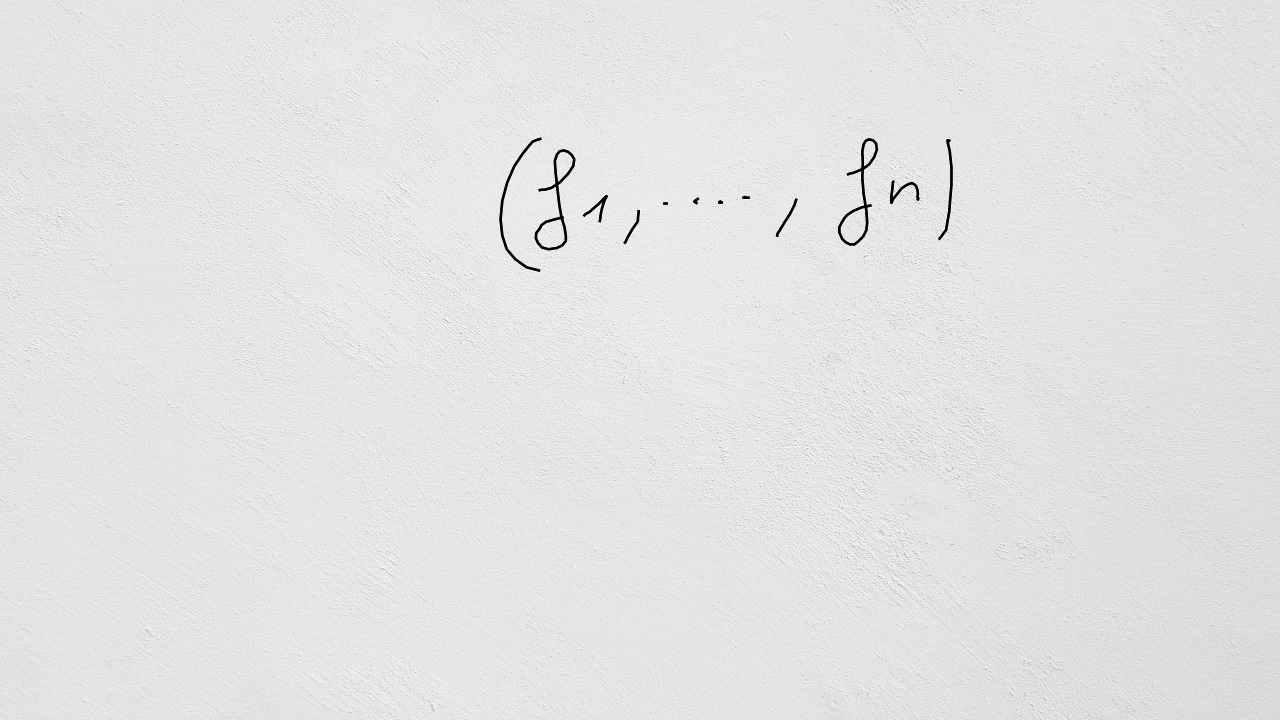 (f1, ...., fn)